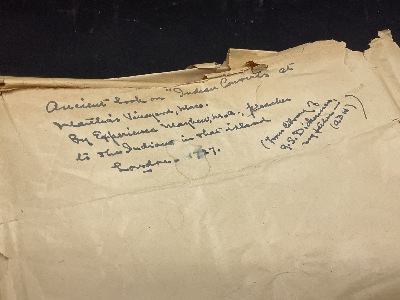 Ancient book on "Indian Converts at
Martha's Vineyard, Mass.
By Experience Mayhew, M.A., preacher
to the Indians in that island
London. 1727.
(From library of
my father
(ADH)